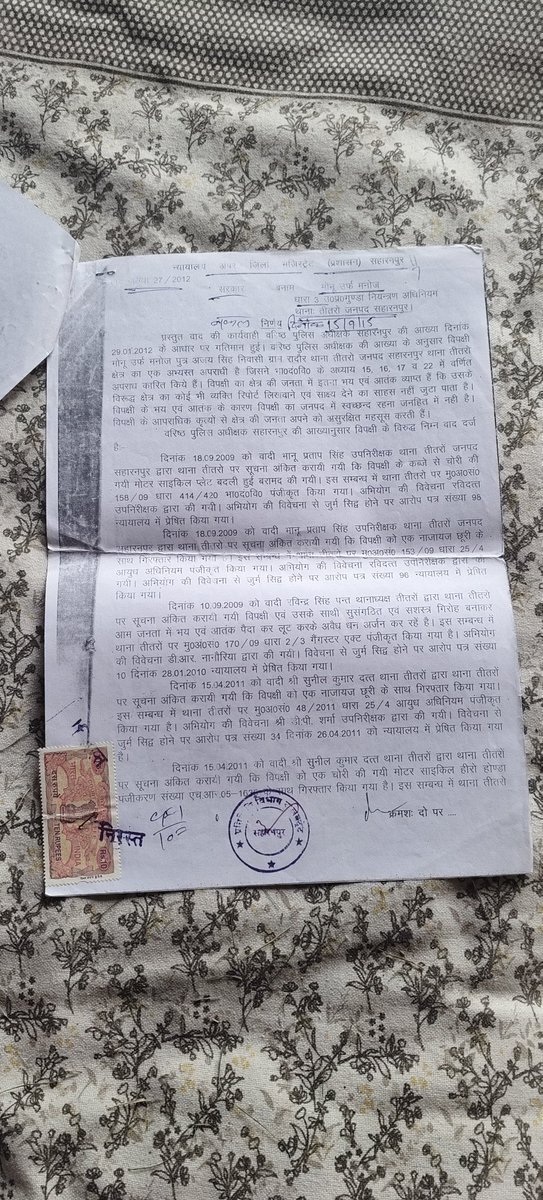 न्यायालय अपर जिला मजिस्ट्रेट (प्रशासन) सहारनपुर
संख्या 27/2012 सरकार बनाम मोनू उर्फ मनोज
धारा 3 उ0प्र0गुण्डा नियन्त्रण अधिनियम
थाना तीतरो जनपद सहारनपुर।
निर्णय 15/9/15
प्रस्तुत वाद की कार्यवाही वरिष्ठ पुलिस अधीक्षक सहारनपुर की आख्या दिनांक
29.01.2012 के आधार पर गतिमान हुई। वरिष्ठ पुलिस अधीक्षक की आख्या के अनुसार विपक्षी
मोनू उर्फ मनोज पुत्र अजय सिंह निवासी ग्राम रादौर थाना तीतरो जनपद सहारनपुर थाना तीतरो
क्षेत्र का एक अभ्यस्त अपराधी है जिसने भा0द0वि0 के अध्याय 15, 16, 17 व 22 में वर्णित
अपराध कारित किये हैं। विपक्षी का क्षेत्र की जनता में इतना भय एवं आतंक व्याप्त है कि उसके
विरूद्ध क्षेत्र का कोई भी व्यक्ति रिपोर्ट लिखवाने एवं साक्ष्य देने का साहस नहीं जुटा पाता है।
विपक्षी के भय एवं आतंक के कारण विपक्षी का जनपद में स्वच्छन्द रहना जनहित में नही है।
विपक्षी के आपराधिक कृत्यों से क्षेत्र की जनता अपने को असुरक्षित महसूस करती हैं।
वरिष्ठ पुलिस अधीक्षक सहारनपुर की आख्यानुसार विपक्षी के विरूद्ध निम्न वाद दर्ज
है:-
दिनांक 18.09.2009 को वादी भानू प्रताप सिंह उपनिरीक्षक थाना तीतरों जनपद
सहारनपुर द्वारा थाना तीतरो पर सूचना अंकित करायी गयी कि विपक्षी के कब्जे से चोरी की
गयी मोटर साइकिल प्लेट बदली हुई बरामद की गयी। इस सम्बन्ध में थाना तीतरो पर मु0अ0सं0
158/09 धारा 414/420 भा0द0वि0 पंजीकृत किया गया। अभियोग की विवेचना रविदत्त
उपनिरीक्षक द्वारा की गयी। अभियोग की विवेचना से जुर्म सिद्व होने पर आरोप पत्र संख्या 98
न्यायालय में प्रेषित किया गया।
दिनांक 18.09.2009 को वादी भानू प्रताप सिंह उपनिरीक्षक थाना तीतरों जनपद
सहारनपुर द्वारा थाना तीतरो पर सूचना अंकित करायी गयी कि विपक्षी को एक नाजायज छूरी के
साथ गिरफ्तार किया गया। इस सम्बन्ध में थाना तीतरो पर मु0अ0सं0 153/09 धारा 25/4
आयुध अधिनियम पंजीकृत किया गया। अभियोग की विवेचना रविदत्त उपनिरीक्षक द्वारा की
गयी। अभियोग की विवेचना से जुर्म सिद्व होने पर आरोप पत्र संख्या 96 न्यायालय में प्रेषित
किया गया।
दिनांक 10.09.2009 को वादी रविन्द्र सिंह पन्त थानाध्यक्ष तीतरो द्वारा थाना तीतरो
पर सूचना अंकित करायी गयी विपक्षी एवं उसके साथी सुसंगठित एवं सशस्त्र गिरोह बनाकर
आम जनता में भय एवं आतंक पैदा कर लूट करके अवैध धन अर्जन कर रहे है। इस सम्बन्ध में
थाना तीतरो पर मु0अ0सं0 170/09 धारा 2/3 गैंगस्टर एक्ट पंजीकृत किया गया है। अभियोग
की विवेचना डी.आर. नागौरिया द्वारा की गयी। विवेचना से जुर्म सिद्व होने पर आरोप पत्र संख्या
10 दिनांक 28.01.2010 न्यायालय में प्रेषित किया गया।
दिनांक 15.04.2011 को वादी श्री सुनील कुमार दत्त थाना तीतरों द्वारा थाना तीतरों
पर सूचना अंकित करायी गयी कि विपक्षी को एक नाजायज छूरी के साथ गिरफ्तार किया गया।
इस सम्बन्ध में थाना तीतरों पर मु0अ0सं0 48/2011 धारा 25/4 आयुध अधिनियम पंजीकृत
किया गया है। अभियोग की विवेचना श्री शर्मा उपनिरीक्षक द्वारा की गयी। विवेचना से
जुर्म सिद्व होने पर आरोप पत्र संख्या 34 दिनांक 26.04.2011 को न्यायालय में प्रेषित किया गया
है।
दिनांक 15.04.2011 को वादी श्री सुनील कुमार दत्त थाना तीतरों द्वारा थाना तीतरों
पर सूचना अंकित करायी गयी कि विपक्षी को एक चोरी की गयी मोटर साइकिल हीरो होण्डा
पंजीकरण संख्या साथ गिरफ्तार किया गया है। इस सम्बन्ध में थाना तीतरो
क्रमशः दो पर ....
निरस्त
सहारनपुर
INDIA
TEN RUPEES
Rs.10